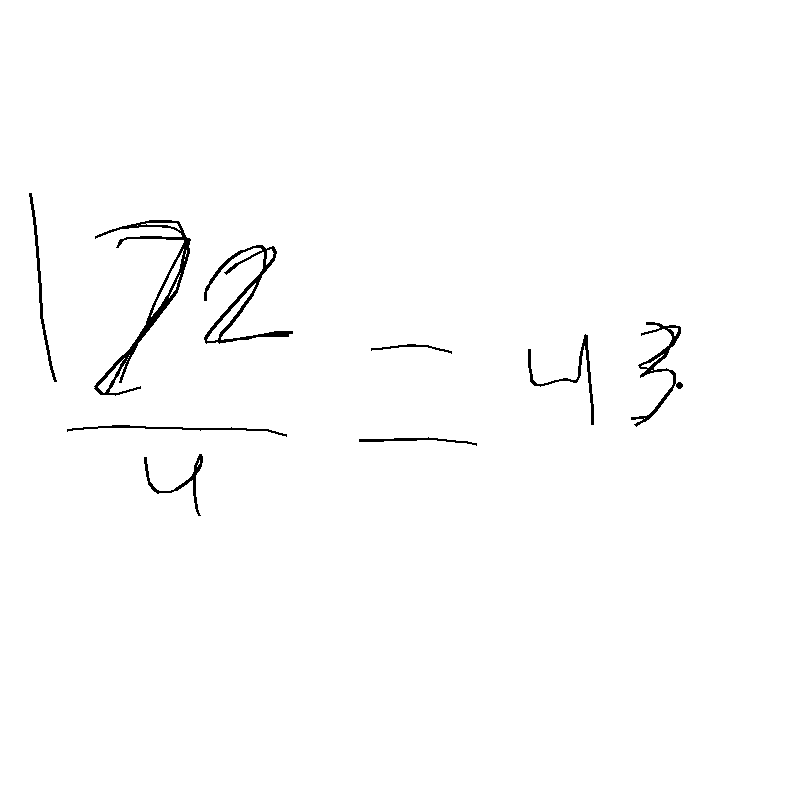 172/4 = 43